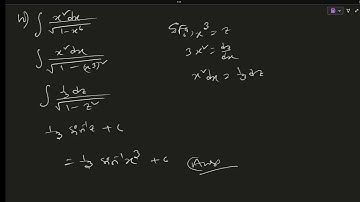 h) ∫ x²dx / √(1-x⁶)
∫ x²dx / √(1-(x³)²)
∫ ⅓dz / √(1-z²)
⅓ sin⁻¹z + c
= ⅓ sin⁻¹x³ + c
Ans
x³ = z
3x² = dz/dx
x²dx = ⅓dz